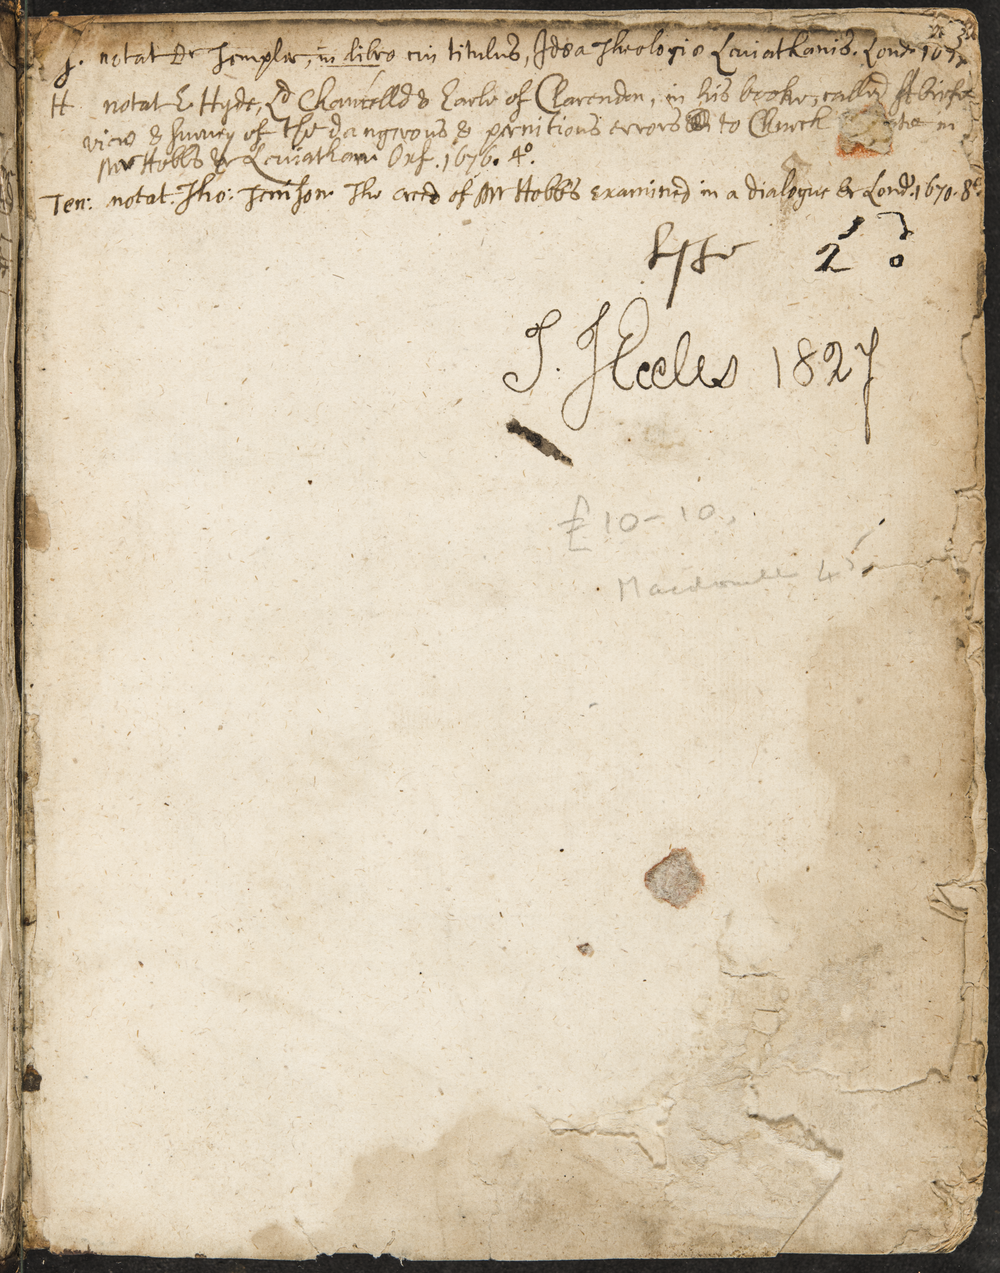 J. notat Dr Templer, in libro cui titulus, Idea Theologiæ Leviathanis. Lond. 167
H notat E Hyde, Ld Chancelld & Earle of Clarendon, in his booke, called A briefe
view & survey of the dangerous & pernitious errors to Church State in
Mr Hobbs Leviathan Oxf. 1676. 4o.
Ten: notat. Tho: Tenison The creed of Mr Hobbs examined in a dialogue &c Lond. 1670. 8o
2
J. Heeles 1827
£10-10.